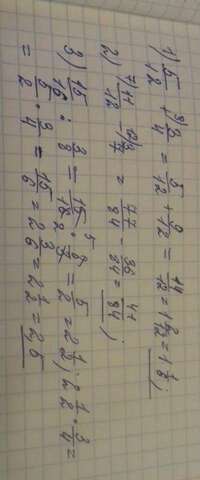 1) 5/12 + 3)3/4 = 5/12 + 9/12 = 14/12 = 1 2/12 = 1 1/6;
2) 7)11/12 - 12)3/7 = 77/84 - 36/84 = 41/84;
3) 15/16 : 3/8 = 15/16 2 · 5 8/3 = 5/2 = 2 1/2; 2 1/2 · 3/4 =
= 5/2 · 3/4 = 15/6 = 2 3/6 = 2 1/2 = 2,5